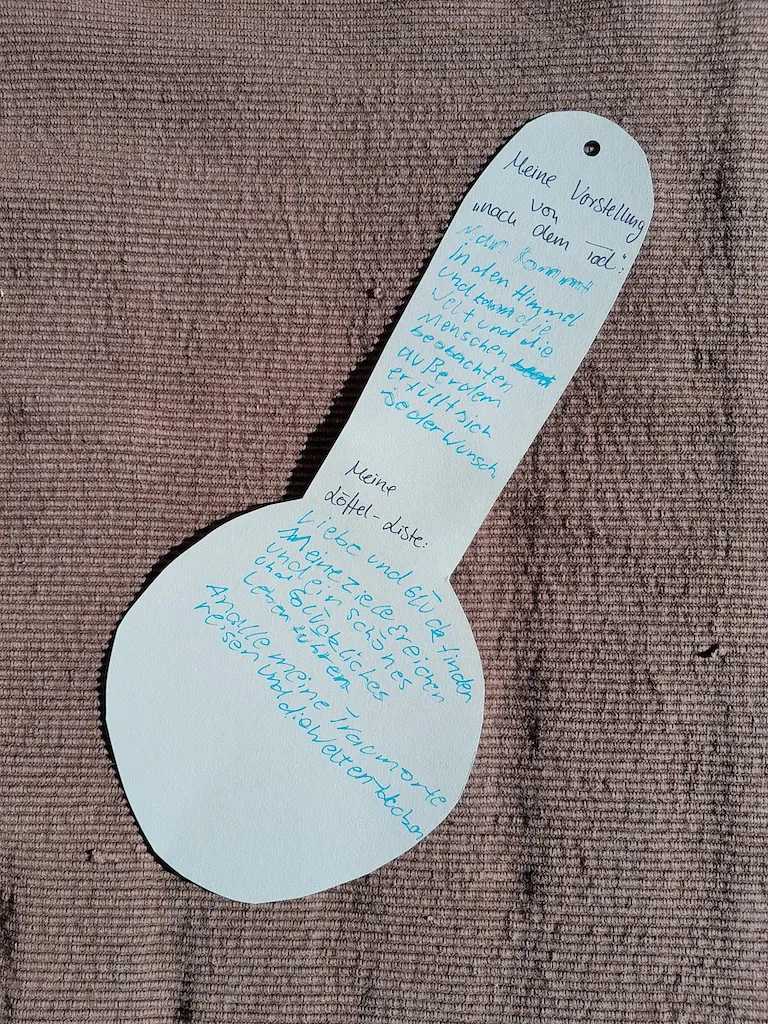 Meine Vorstellung
von
„nach dem Tod":
Man kommt
in den Himmel
und kann die
Welt und die
Menschen
beobachten
außerdem
erfüllt sich
jeder Wunsch.
Meine
Löffel-Liste:
Liebe und Glück finden
Meine Ziele Ereichen
und ein schönes
und Glückliches
Leben führen
An alle meine Traumorte
reisen und die Welt entdecken